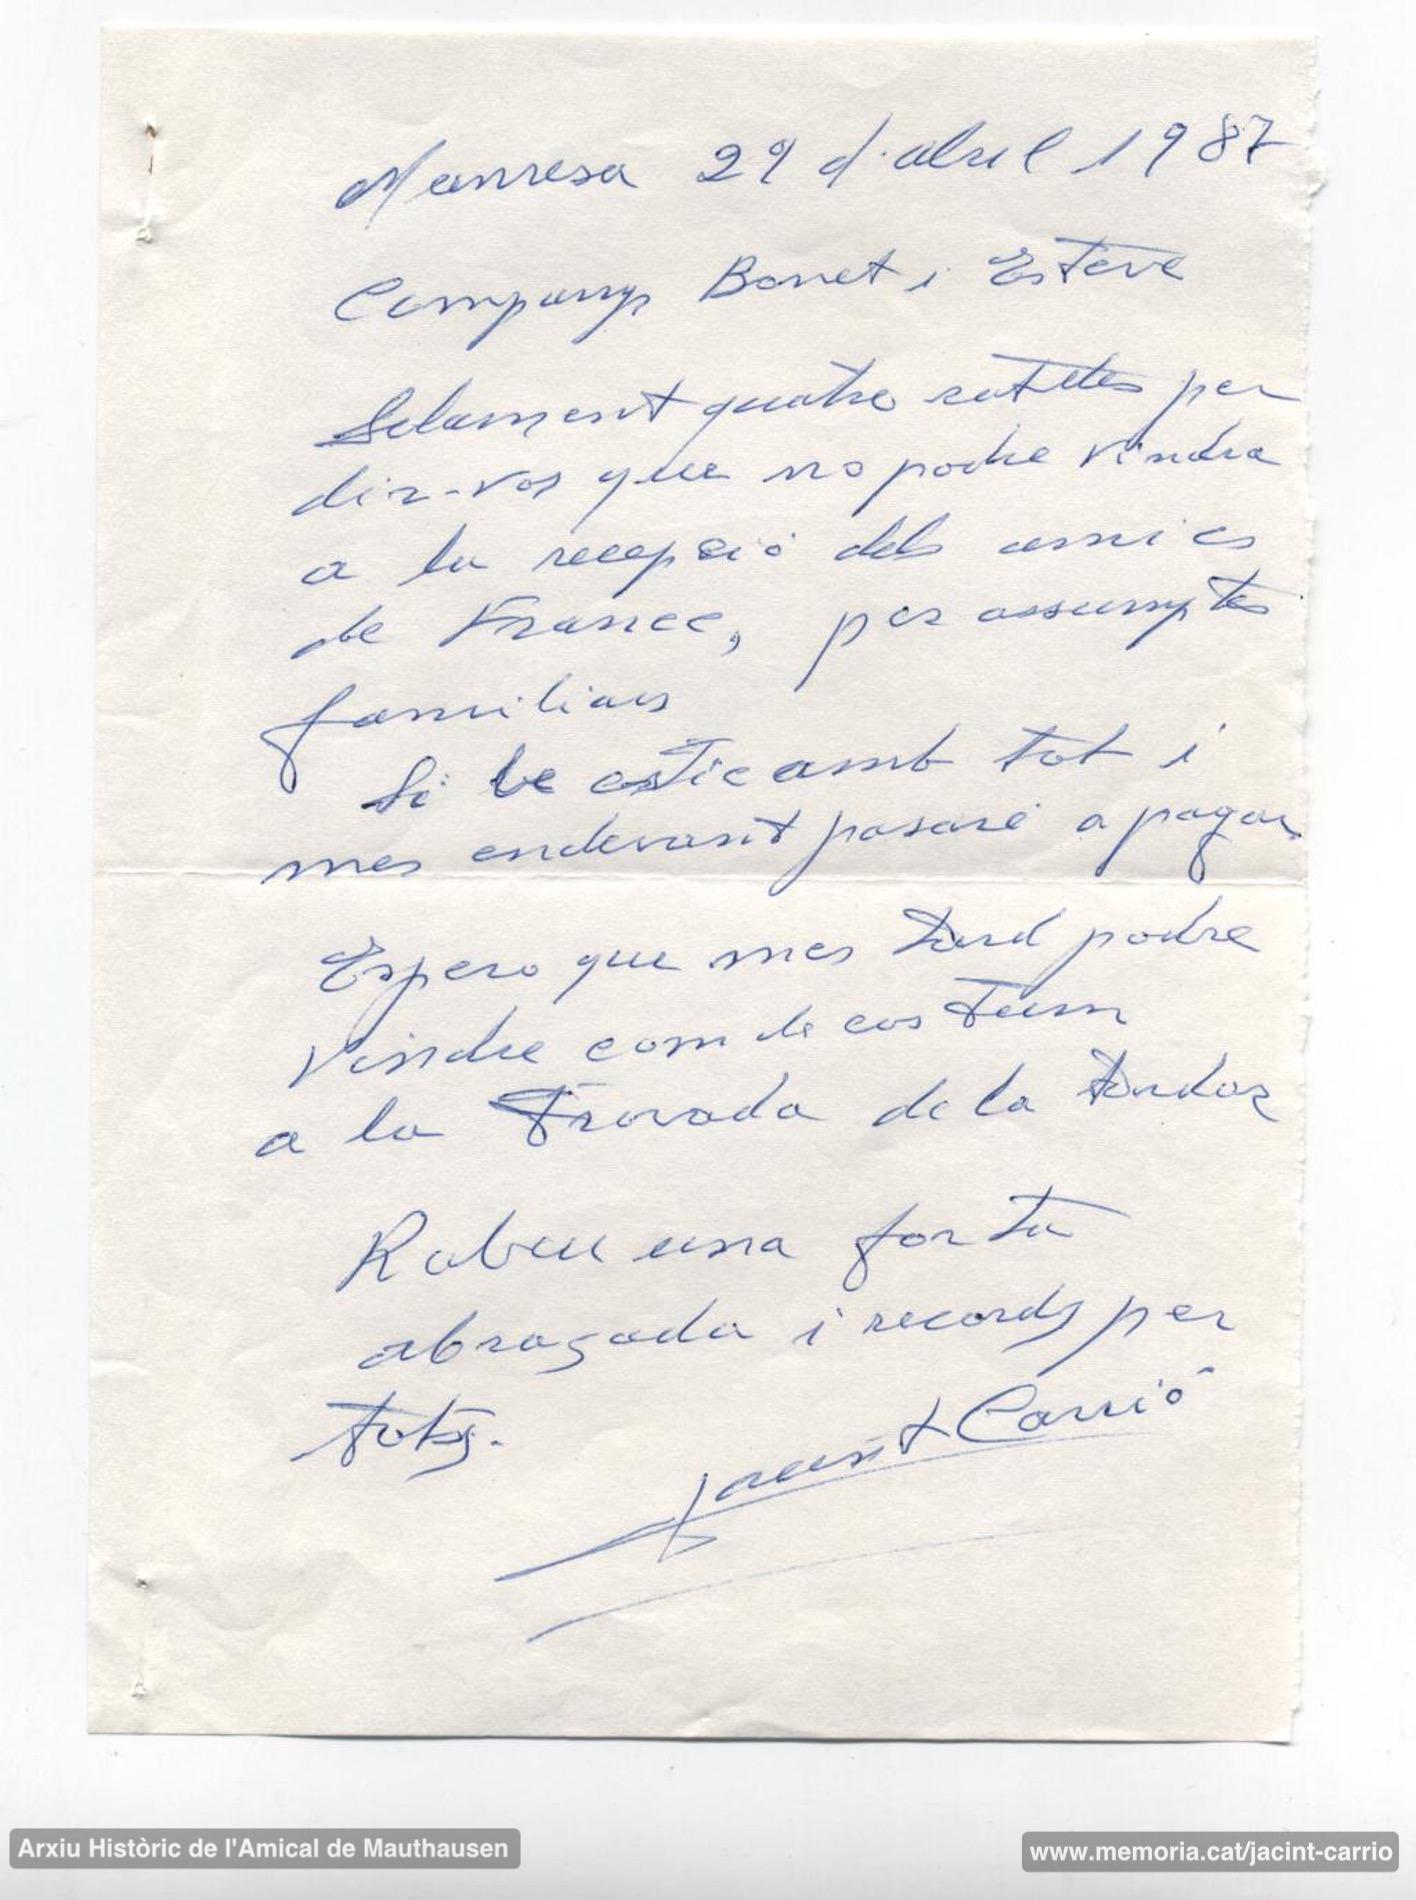 Manresa 29 d'abril 1987
Companys Bonet i Esteve
Solament quatre ratlletes per
dir-vos que no podre vindre
a la recepció dels amics
de France, per assumptes
familiars
Si be estic amb tot i
mes endevant pasaré a pagar
Espero que mes tard podre
vindre com de costum
a la Trovada de la tardor
Rabeu una forta
abraçada i records per
tots.
Jacint Carrió
Arxiu Històric de l'Amical de Mauthausen
www.memoria.cat/jacint-carrio